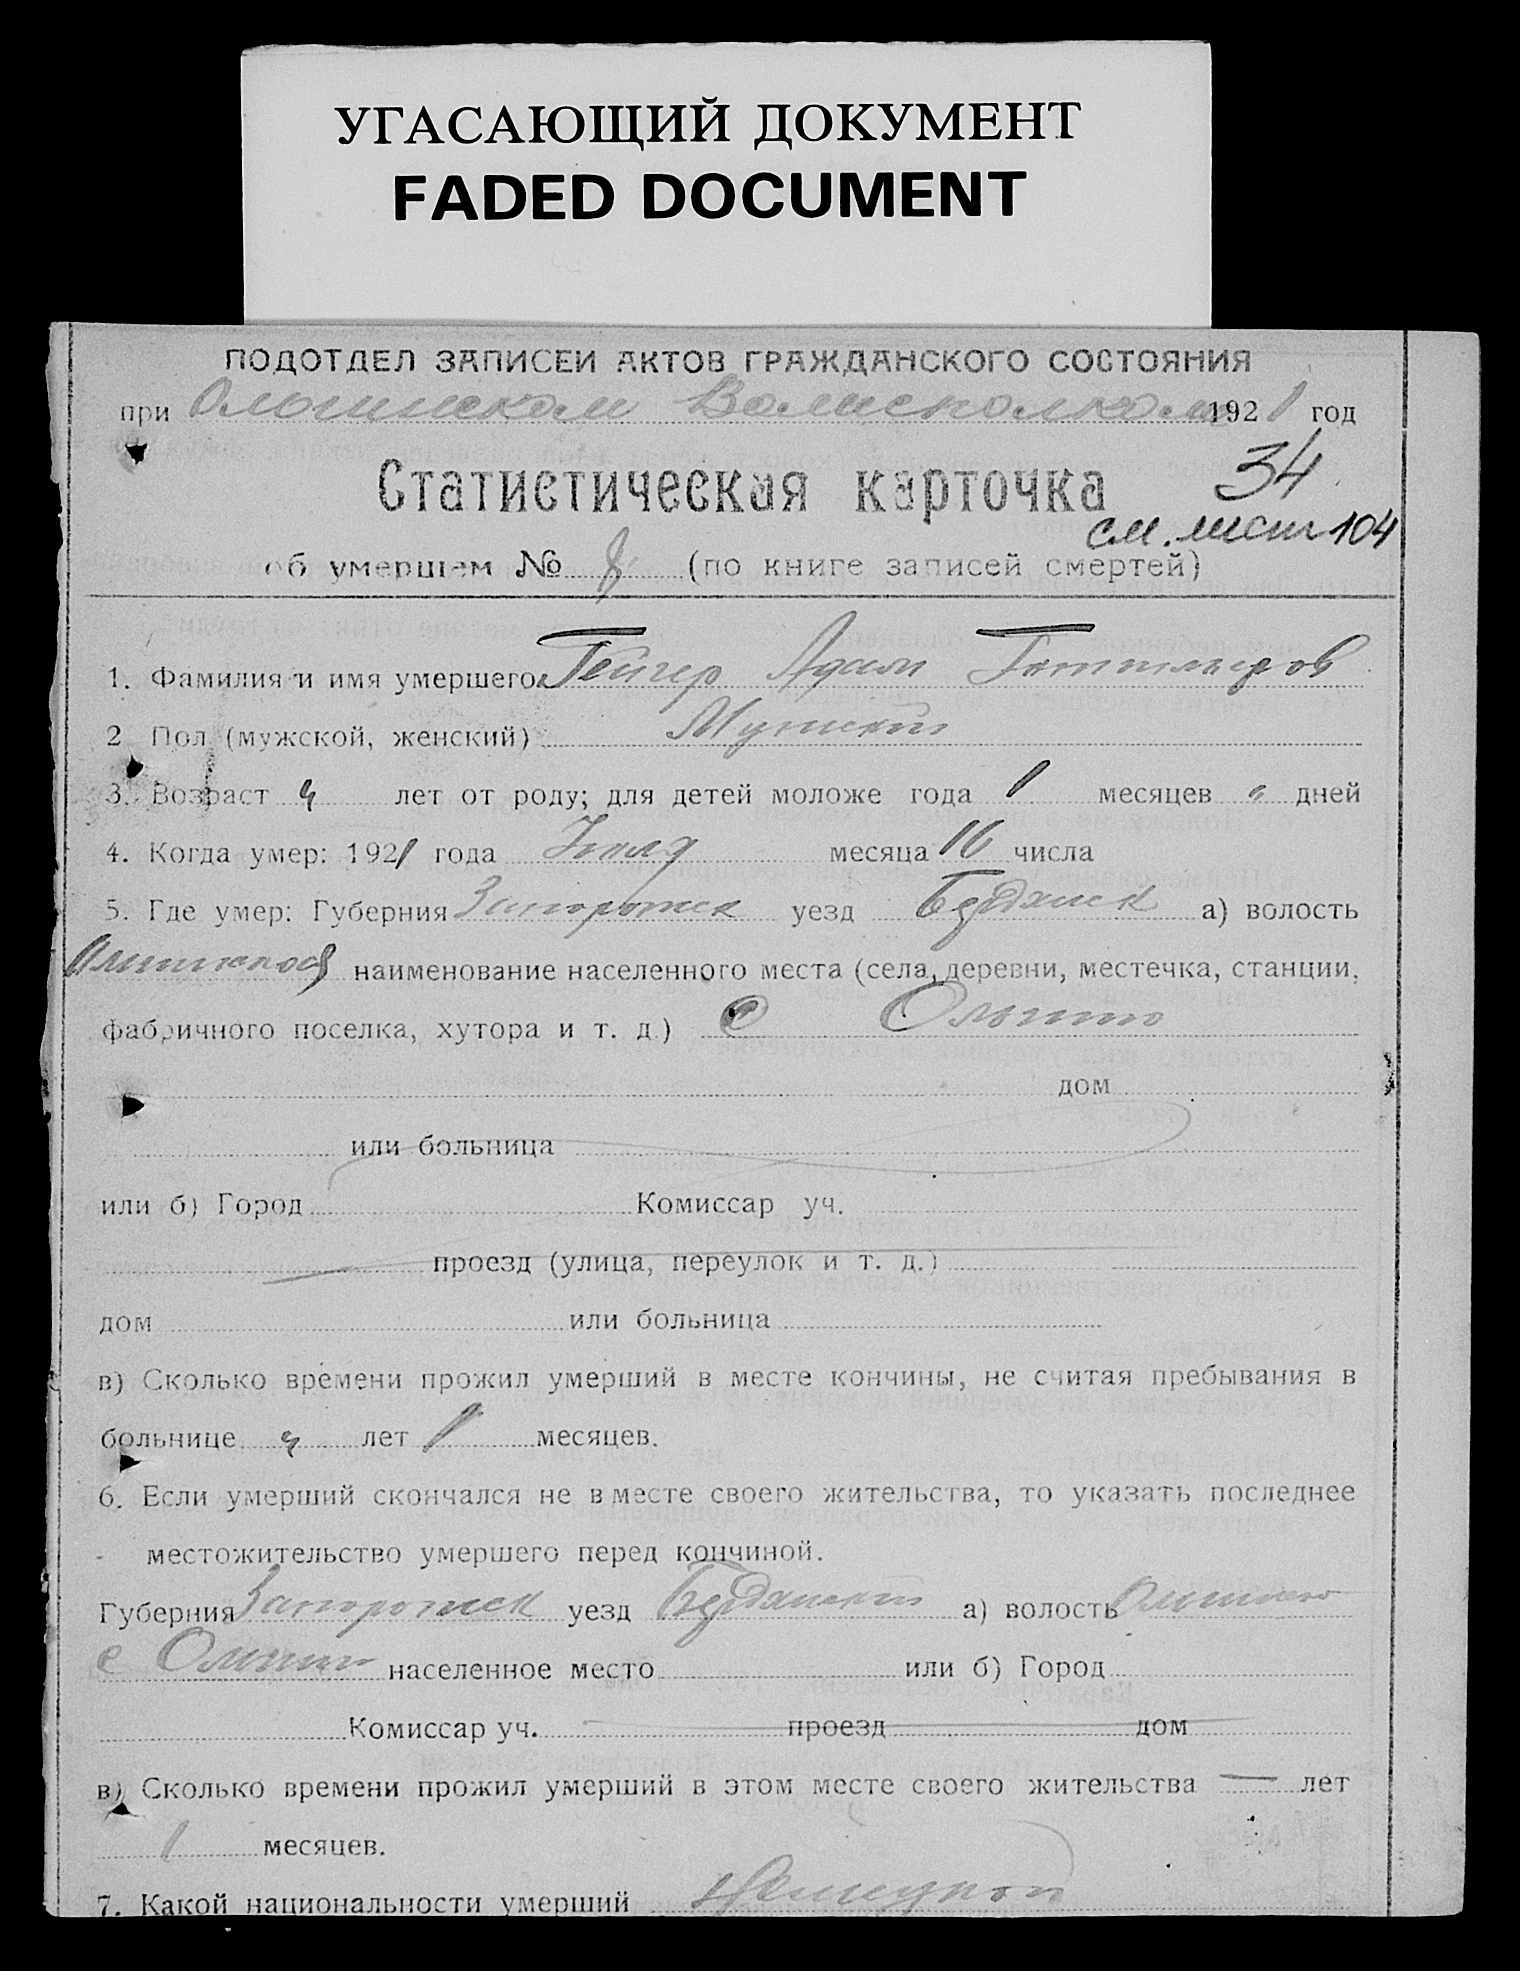 УГАСАЮЩИЙ ДОКУМЕНТ
FADED DOCUMENT
ПОДОТДЕЛ ЗАПИСЕЙ АКТОВ ГРАЖДАНСКОГО СОСТОЯНИЯ
при Ольгинском Волисполкоме 1921 год
Статистическая карточка 34
см. лист 104
об умершем № 8 (по книге записей смертей)
1. Фамилия и имя умершего Гейгер Адам Готтлибров
2 Пол (мужской, женский) Мужской
3. Возраст 4 лет от роду; для детей моложе года 1 месяцев " дней
4. Когда умер: 1921 года месяца 16 числа
5. Где умер: Губерния Запорожск уезд Бердянск а) волость
Ольгинской наименование населенного места (села, деревни, местечка, станции,
фабричного поселка, хутора и т. д.) С Ольгино
дом
или больница
или б) Город Комиссар уч.
проезд (улица, переулок и т. д.)
дом или больница
в) Сколько времени прожил умерший в месте кончины, не считая пребывания в
больнице 4 лет 1 месяцев.
6. Если умерший скончался не в месте своего жительства, то указать последнее
местожительство умершего перед кончиной.
Губерния Запорожск уезд Бердянский а) волость Ольгино
с Ольгино населенное место или б) Город
Комиссар уч. проезд дом
в) Сколько времени прожил умерший в этом месте своего жительства — лет
1 месяцев.
7. Какой национальности умерший Немецкой